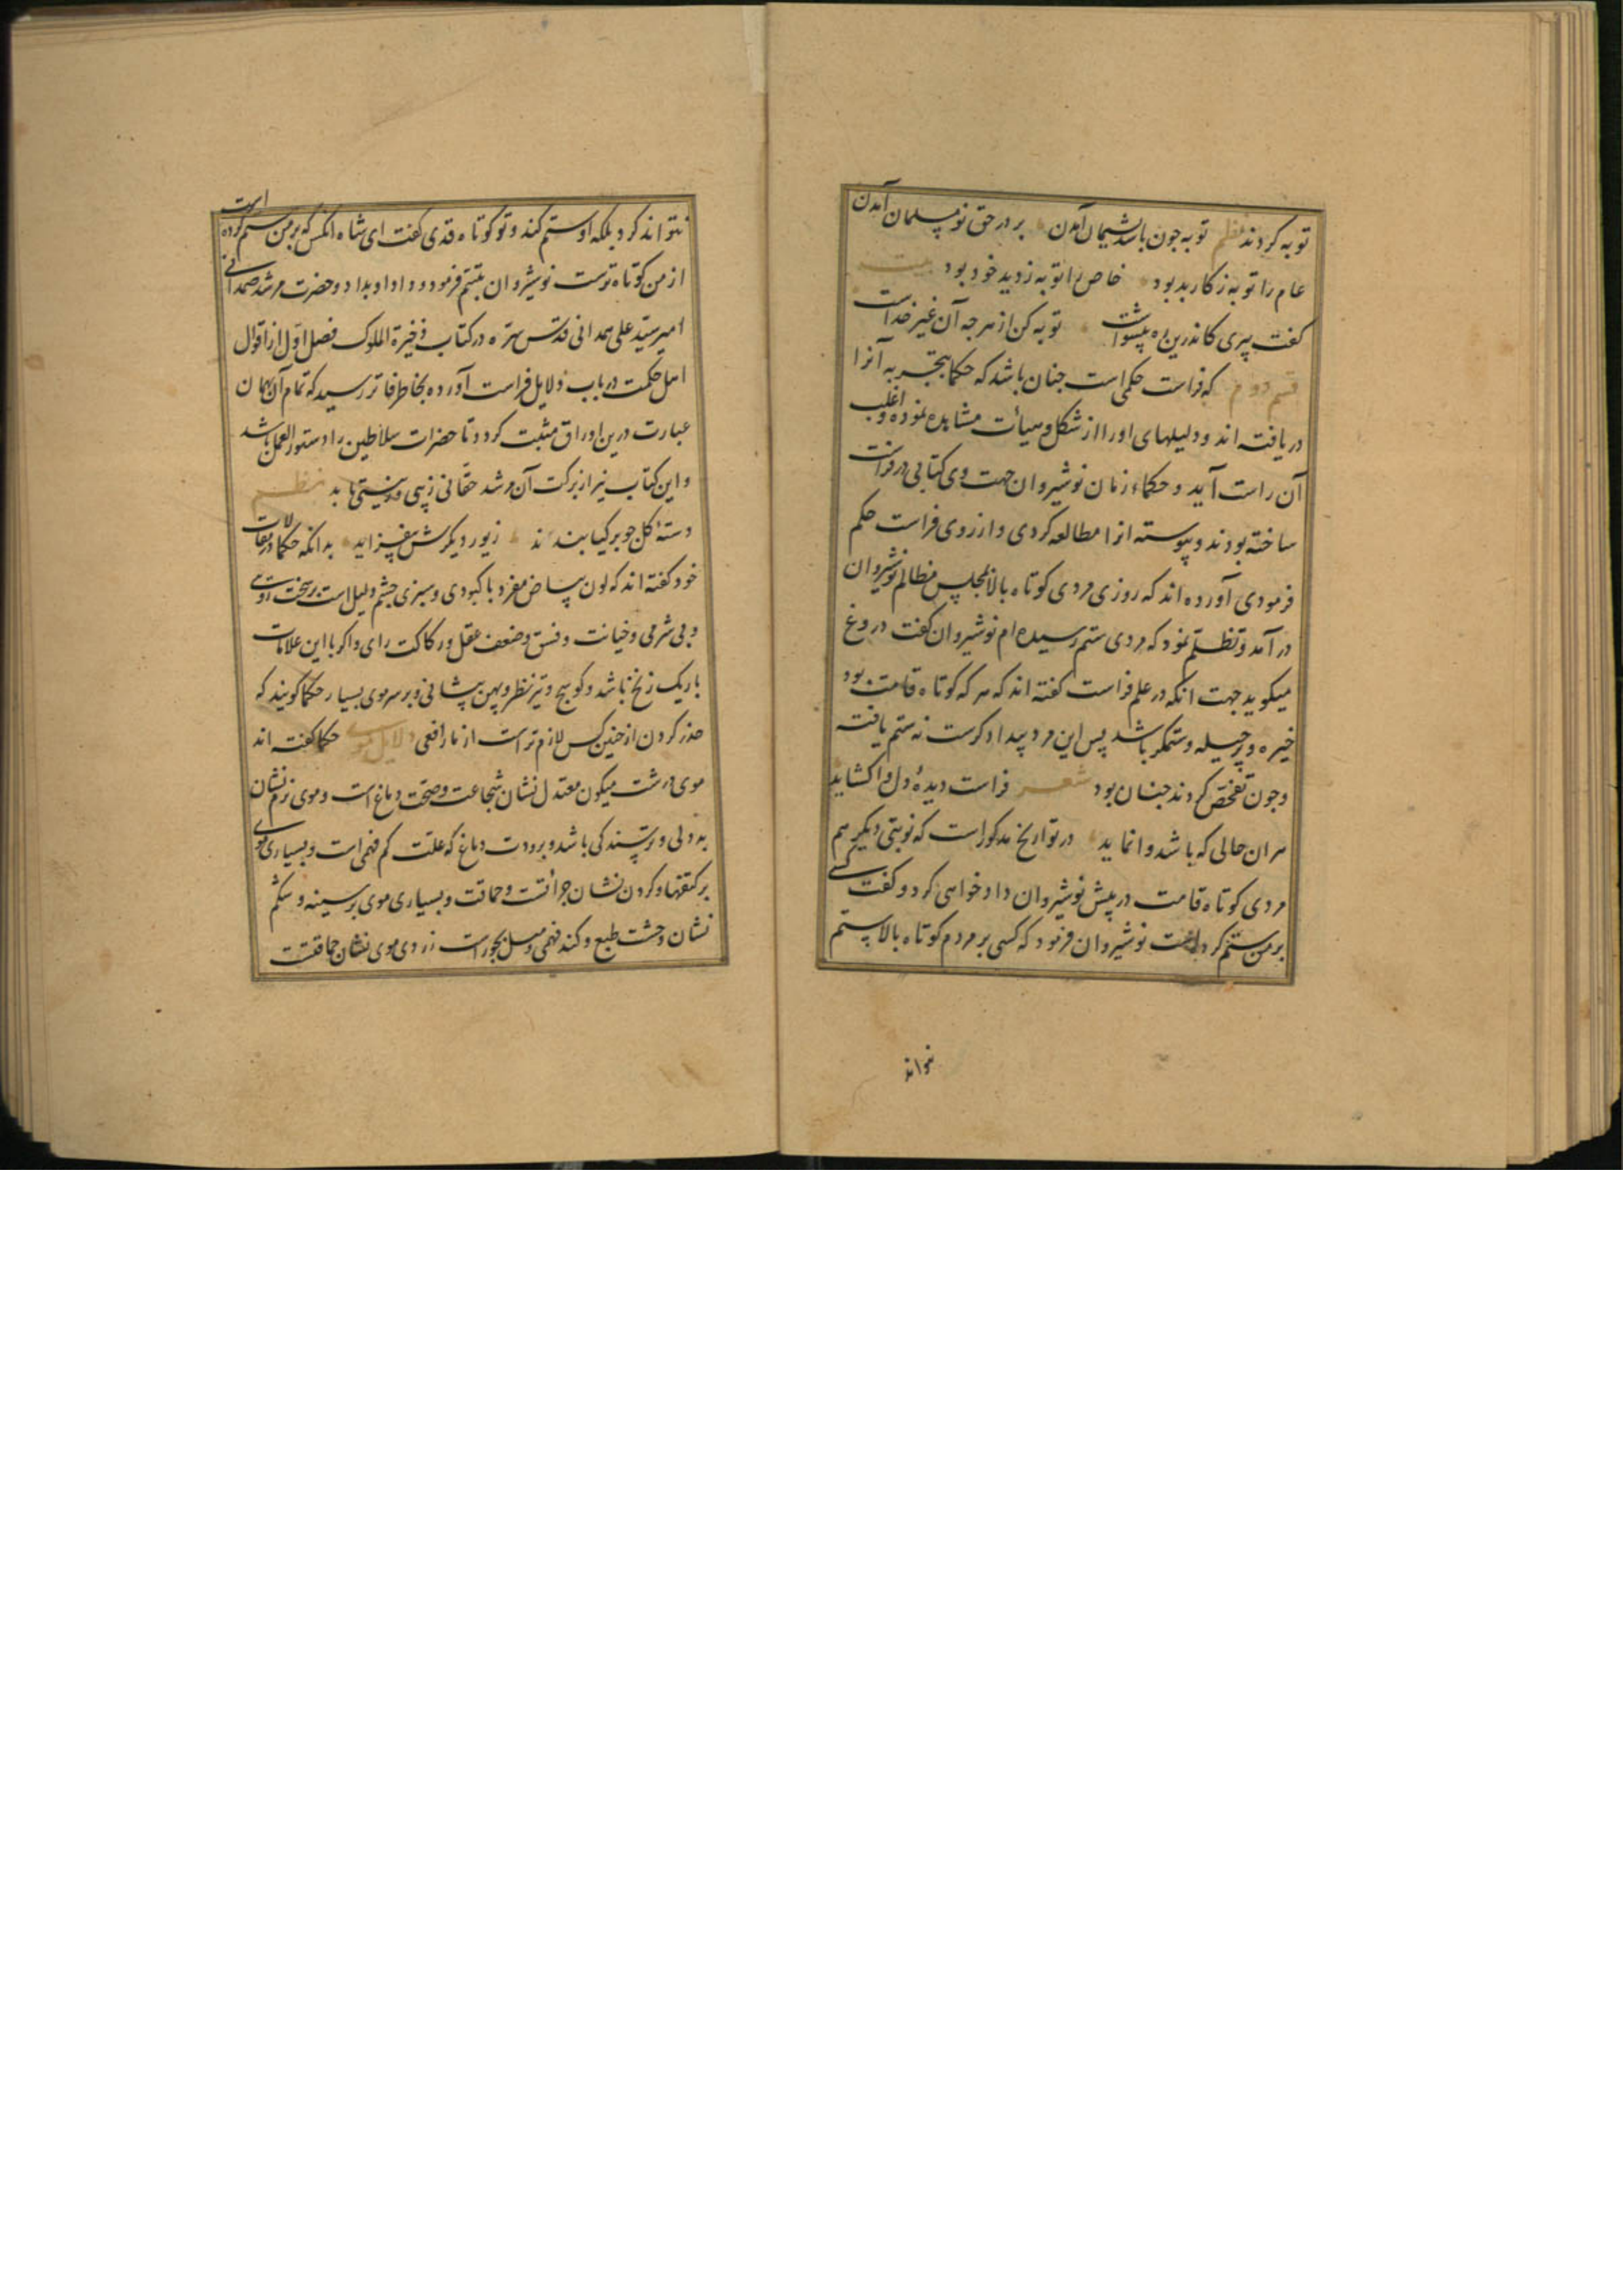 توبه کردند نظم توبه چون باشد پشیمان آمدن بر در حق نو مسلمان آمدن
عام را توبه ز کار بد بود خاص را توبه ز دید خود بود بیت
کفت پیری کاندرین ره پیشواست توبه کن از هرجه آن غیر خداست
قسم دوم که فراست حکمی است جنان باشد که حکما بتجربه آنرا
دریافته اند و دلیلهای اورا از شکل و هیأت مشاهده نموده و اغلب
آن راست آید و حکماء زمان نوشیروان جهت وی کتابی در فراست
ساخته بودند و پیوسته انرا مطالعه کردی و از روی فراست حکم
فرمودی آورده اند که روزی مردی کوتاه بالا بمجلس مظالم نوشیروان
در آمد و تظلم نمود که مردی ستم رسیده ام نوشیروان کفت دروغ
میکوید جهت انکه در علم فراست کفته اند که هر که کوتاه قامت بود
خیره و پر حیله و ستمکر باشد پس این مرد بیدادکرست نه ستم یافته
و جون تفحص کردند جنان بود شعر فراست دیدهٔ دل را کشاید
هر ان حالی که باشد وا نماید در تواریخ مذکور است که نوبتی دیکر هم
مردی کوتاه قامت در پیش نوشیروان دادخواهی کرد و کفت کسی
بر من ستم کرده است نوشیروان فرمود که کسی بر مردم کوتاه بالا ستم
نتواند
نتواند کرد بلکه او ستم کند و تو کوتاه قدی کفت ای شاه انکس که بر من ستم کرده است
از من کوتاه ترست نوشیروان تبسم فرمود و داد او بداد و حضرت مرشد صمدانی
امیر سید علی همدانی قدس سره در کتاب ذخیرة الملوک فصل اول از اقوال
اهل حکمت در باب دلایل فراست آورده بخاطر فاتر رسید که تمام آن بهمان
عبارت درین اوراق مثبت کردد تا حضرات سلاطین را دستور العمل باشد
و این کتاب نیز از برکت آن مرشد حقانی زیبی و زینتی یابد نظم
دستهٔ کل جو بر کیا بندند زیور دیکرش بیفزاید بدانکه حکما در مقالات
خود کفته اند که لون بیاض مفرد با کبودی و سبزی جشم دلیل است بر سخت روی
و بی شرمی و خیانت و فسق و ضعف عقل و رکاکت رای و اکر با این علامات
باریک زنخ باشد و کوسج و تیز نظر و پهن پیشانی و بر سر موی بسیار حکما کویند که
حذر کردن از جنین کس لازم تر است از مار افعی دلایل موی حکما کفته اند
موی درشت میکون معتدل نشان شجاعت و صحت دماغ است و موی نرم نشان
بد دلی و ترسندکی باشد و برودت دماغ که علت کم فهمی است و بسیاری موی
بر کتفها و کردن نشان جرأتست و حماقت و بسیاری موی بر سینه و شکم
نشان وحشت طبع و کند فهمی و میل بجور است زردی موی نشان حماقتست